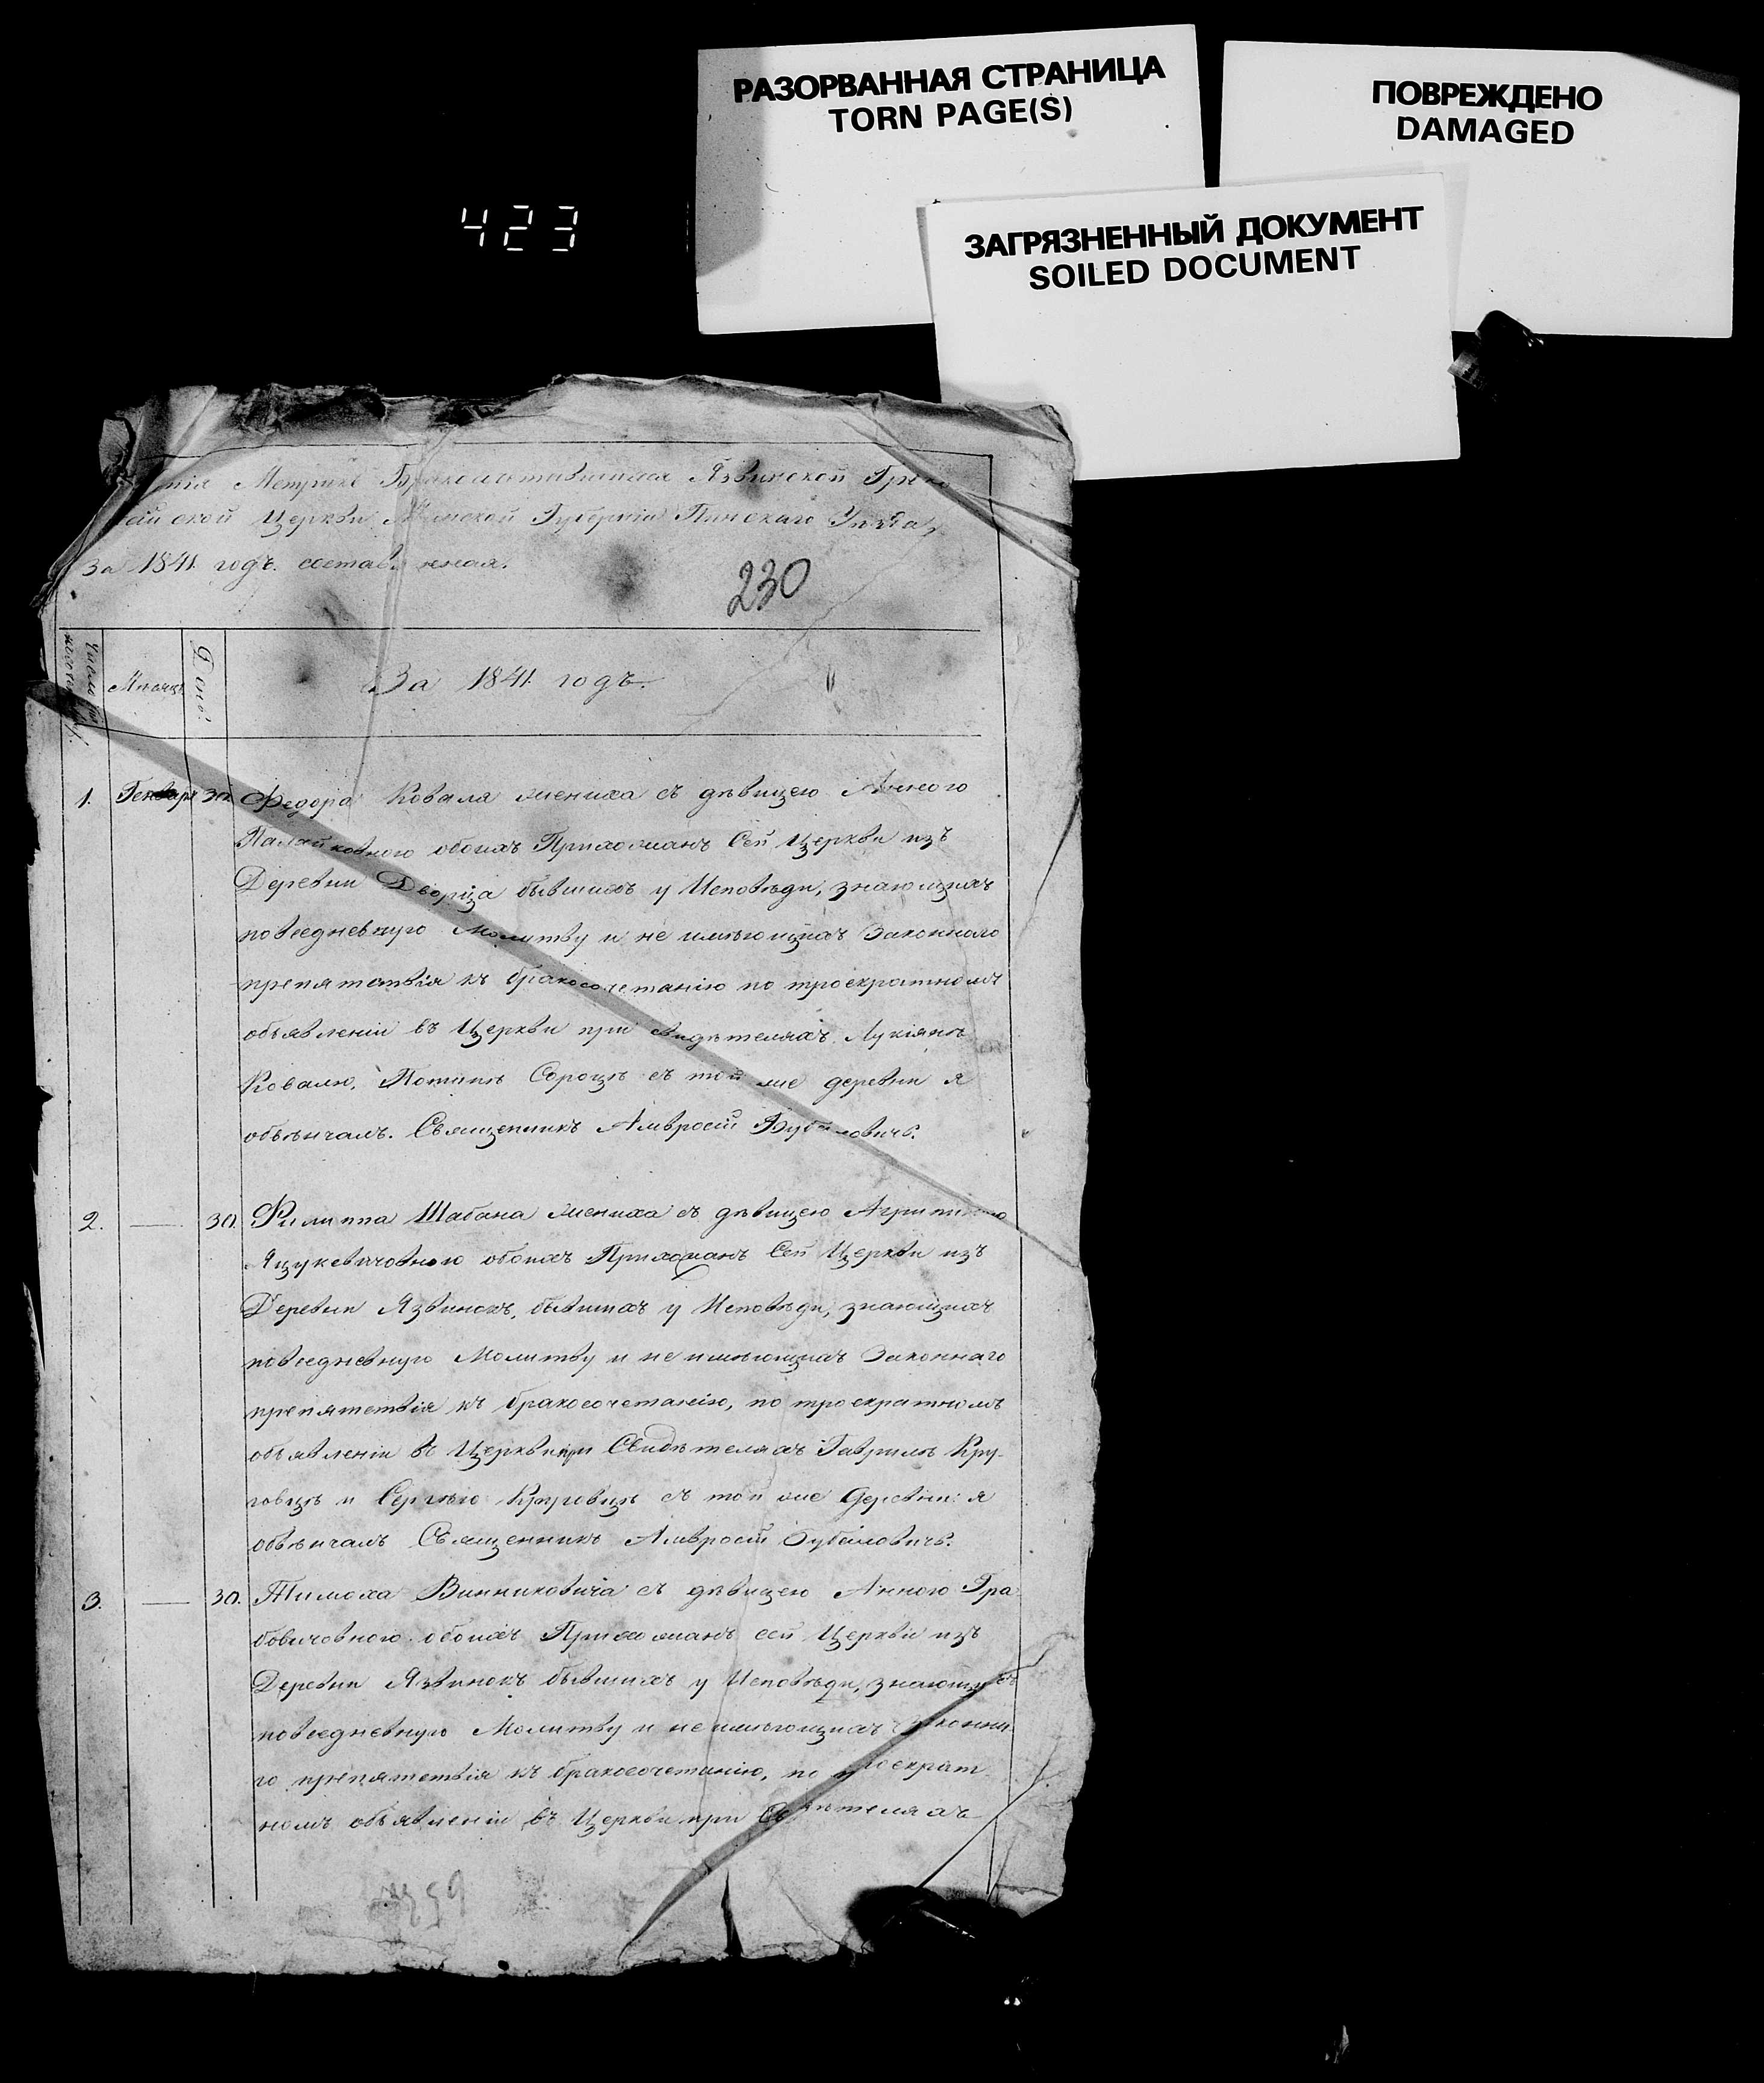 РАЗОРВАННАЯ СТРАНИЦА
TORN PAGE(S)
ПОВРЕЖДЕНО
DAMAGED
ЗАГРЯЗНЕННЫЙ ДОКУМЕНТ
SOILED DOCUMENT
423
Метрике Язвинской Греко
Церкви Минской Губернии Пинскаго Уезда,
За 1841 годъ.
230
Месяцъ
День.
За 1841 годъ.
1. Генваря 30 Федора Коваля жениха съ девицею Анною
обоихъ Прихожанъ Сей Церкви изъ
Деревни Дворца бывшихъ у Исповѣди, знающихъ
повседневную Молитву и не имѣющихъ Законнаго
препятствія къ бракосочетанію по троекратномъ
объявленіи въ Церкви при свидѣтеляхъ Лукіянѣ
Ковалю, Сороцѣ съ той же деревни я
обвѣнчалъ. Священникъ Амвросій
2. — 30. Филиппа Шабана жениха съ дѣвицею
Яцукевичовною обоихъ Прихожанъ Сей Церкви изъ
Деревни Язвинокъ, бывшихъ у Исповѣди, знающихъ
повседневную Молитву и не имѣющихъ Законнаго
препятствія къ бракосочетанію, по троекратномъ
объявленіи въ Церкви при Свидѣтеляхъ Гаврилѣ Кру-
говцѣ и Сергѣю Круговцѣ съ той же Деревни я
обвѣнчалъ Священникъ Амвросій
3. — 30. Тимоха Винниковича съ дѣвицею Анною Гра
бовичовною обоихъ Прихожанъ сей Церкви изъ
Деревни Язвинокъ бывшихъ у Исповѣди, знающихъ
повседневную Молитву и не имѣющихъ Законна-
го препятствія къ бракосочетанію, по троекрат
номъ объявленіи въ Церкви при Свидѣтеляхъ